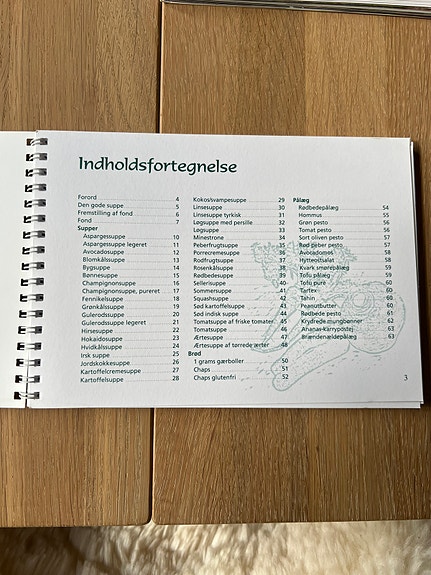 Indholdsfortegnelse
Forord 4
Den gode suppe 5
Fremstilling af fond 6
Fond 7
Supper
Aspargessuppe 10
Aspargessuppe legeret 11
Avocadosuppe 12
Blomkålssuppe 13
Bygsuppe 14
Bønnesuppe 15
Champignonsuppe 16
Champignonsuppe, pureret 17
Fennikelsuppe 18
Grønkålssuppe 19
Gulerodssuppe 20
Gulerodssuppe legeret 21
Hirsesuppe 22
Hokaidosuppe 23
Hvidkålssuppe 24
Irsk suppe 25
Jordskokkesuppe 26
Kartoffelcremesuppe 27
Kartoffelsuppe 28
Kokos/svampesuppe 29
Linsesuppe 30
Linsesuppe tyrkisk 31
Løgsuppe med persille 32
Løgsuppe 33
Minestrone 34
Peberfrugtsuppe 35
Porrecremesuppe 36
Rodfrugtsuppe 37
Rosenkålsuppe 38
Rødbedesuppe 39
Sellerisuppe 40
Sommersuppe 41
Squashsuppe 42
Sød kartoffelsuppe 43
Sød indisk suppe 44
Tomatsuppe af friske tomater 45
Tomatsuppe 46
Ærtesuppe 47
Ærtesuppe af tørrede ærter 48
Brød
1 grams gærboller 50
Chaps 51
Chaps glutenfri 52
Pålæg
Rødbedepålæg 54
Hommus 55
Grøn pesto 56
Tomat pesto 56
Sort oliven pesto 57
Rød peber pesto 57
Avocadomos 58
Hytteostsalat 58
Kvark smørepålæg 59
Tofu pålæg 59
Tofu pure 60
Tartex 60
Tahin 60
Peanutbutter 60
Rødbede pesto 61
Krydrede mungbønner 62
Ananas-karrypostej 63
Brændenældepålæg 63
3